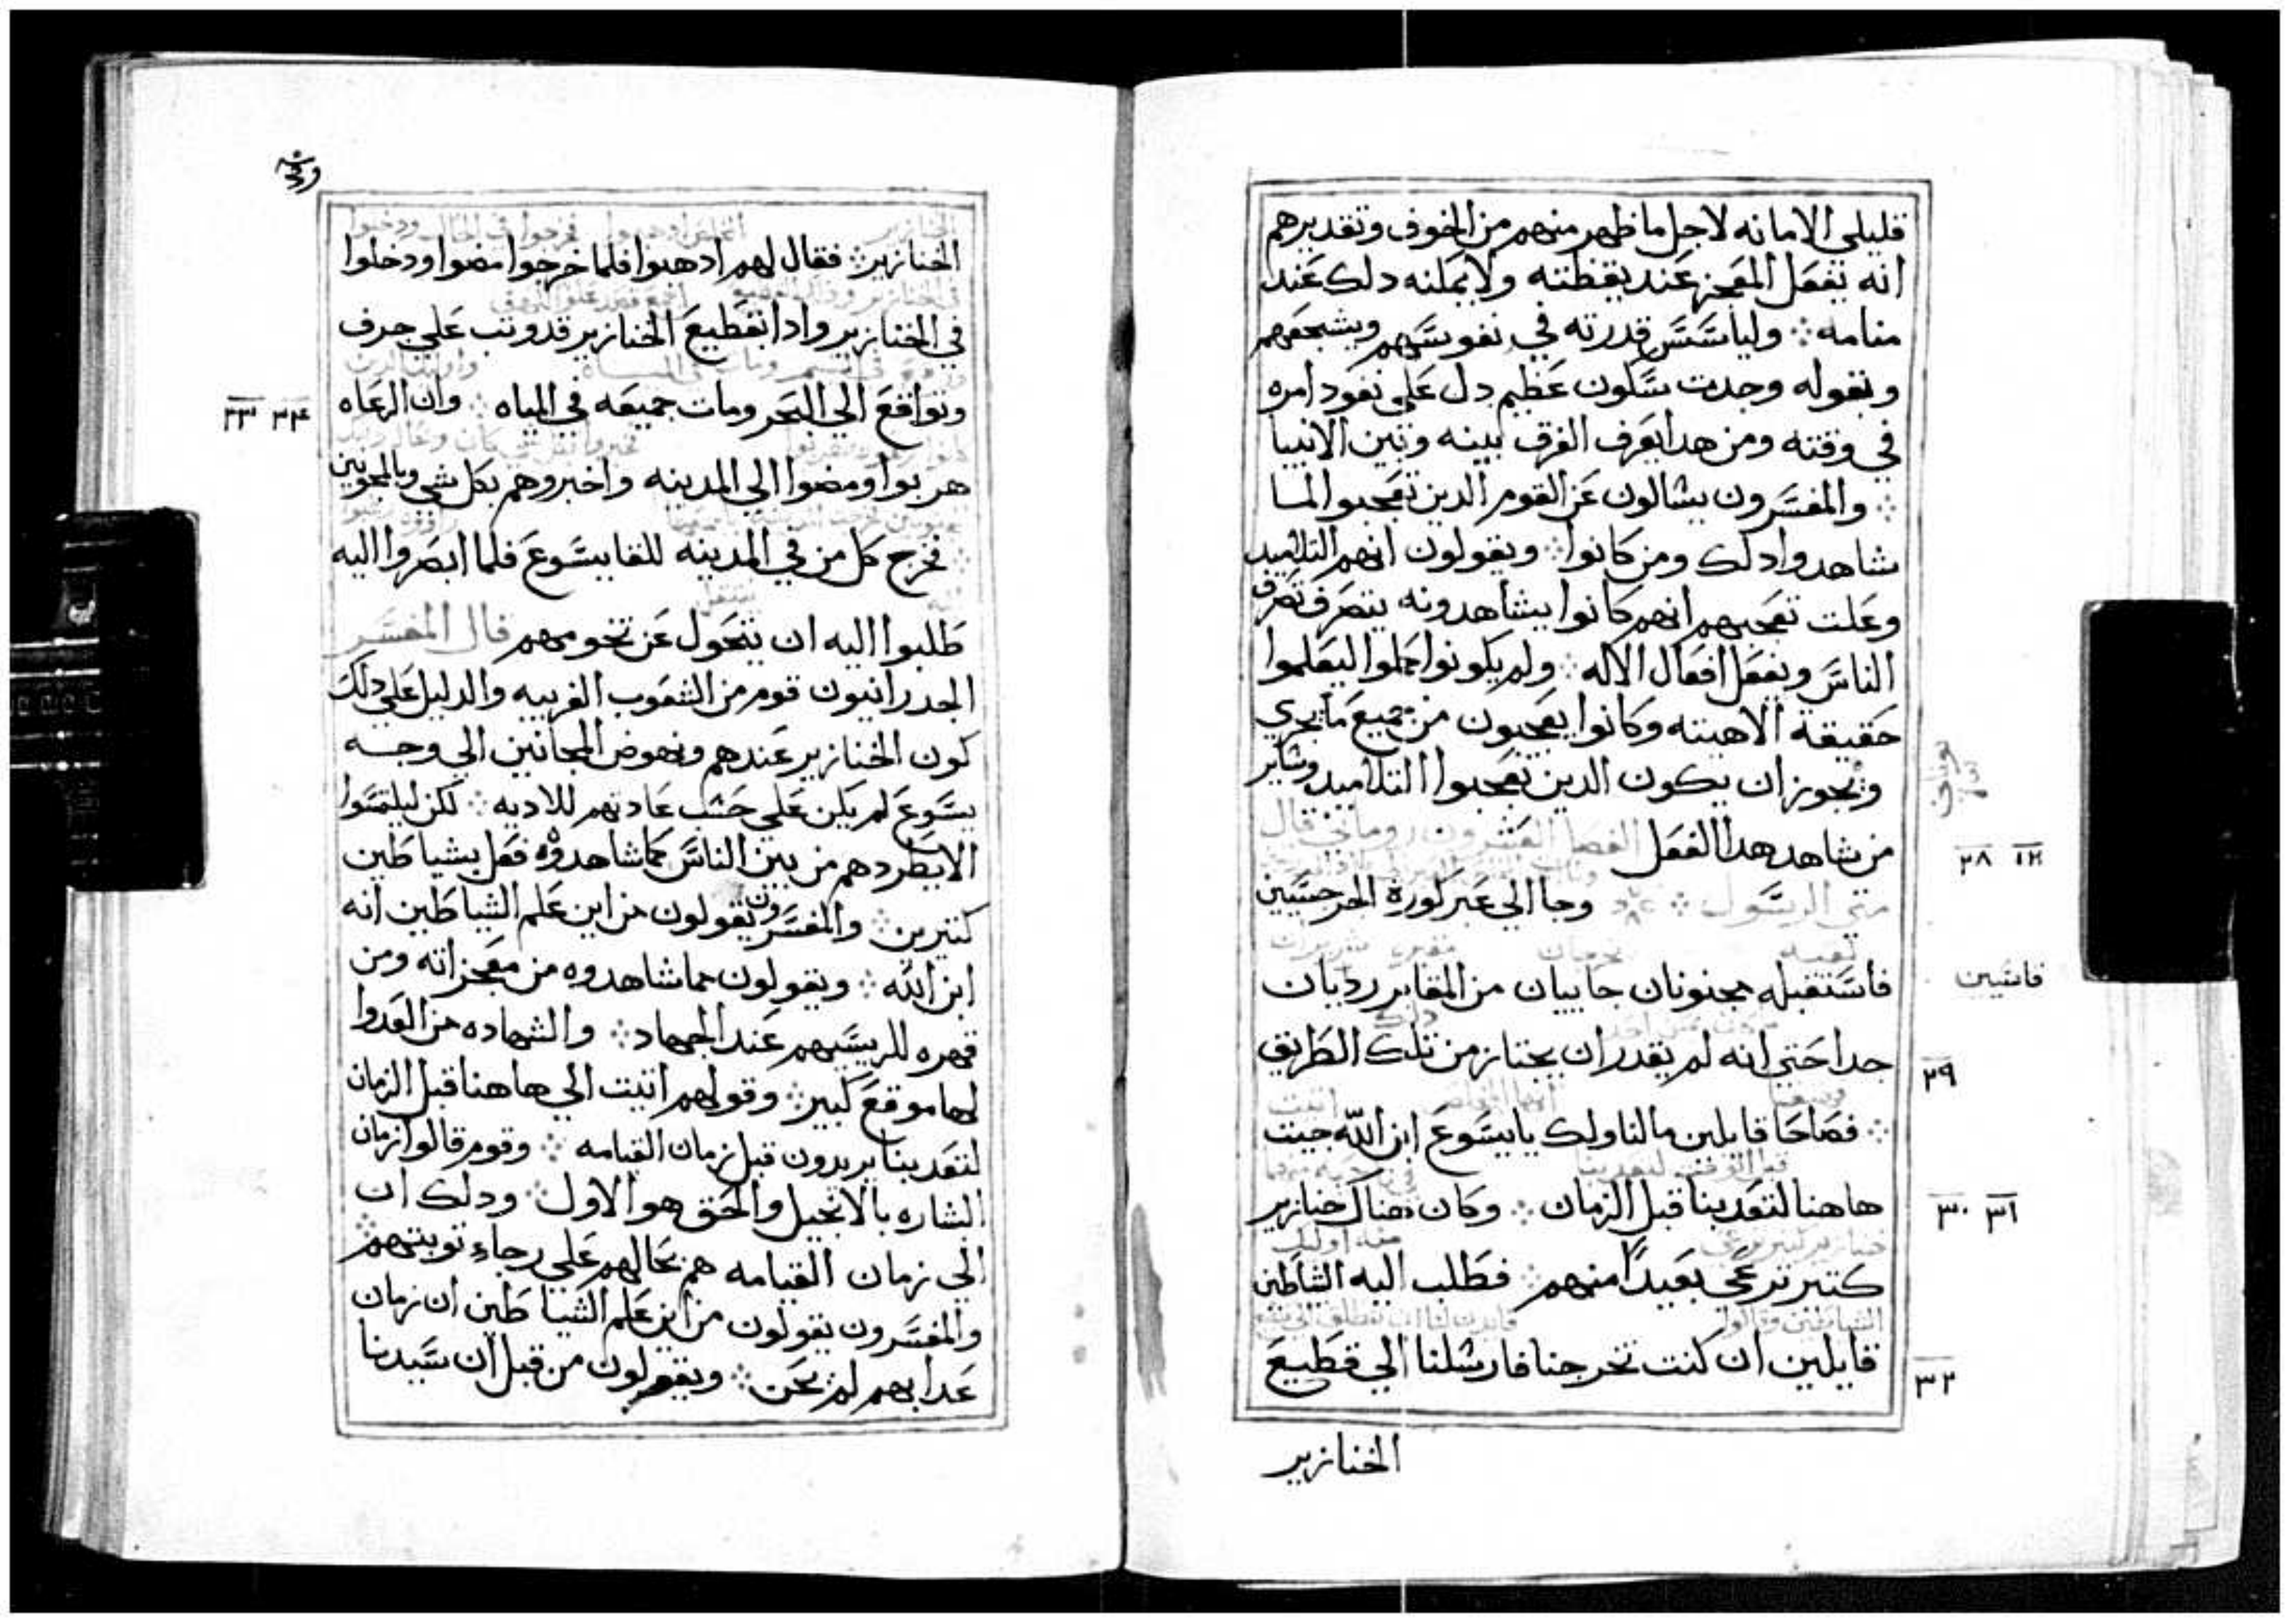 قليلي الامانه لاجل ما ظهر منهم من الخوف وتقديرهم
انه تفعل المعجز عند يقظته ولا يمكنه دلك عند
منامه ⁘ وليأسّسّ قدرته في نفوسّهم ويشجعهم
وبقوله وجدت سّكون عظيم دل على نفود امره
في وقته ومن هدا يعرف الفرق بينه وبين الانبيا
⁘ والمفسّرون يسالون عن القوم الدين تعجبوا لما
شاهدوا دلك ومن كانوا ⁘ ويقولون انهم التلاميد
وعلت تعجبهم انهم كانوا يشاهدونه يتصرف تصرف
الناسّ ويفعل افعال الاله ⁘ ولم يكونوا كملوا ليعلموا
حقيقة الاهيته وكانوا يعجبون من جميع ما يجري
ويجوز ان يكون الدين تعجبوا التلاميد وساير
من شاهد هدا الفعل الفصل العشرون روماني قال
١٢ ٢٨
متي الرسّول ⁘ وجا الي عبر كورة الجرجسّيين
فاسّتقبله مجنونان جاييان من المقابر رديان
جدا حتي انه لم يقدر ان يجتاز من تلك الطريق
٢٩
⁘ فصاحا قايلين مالنا ولك يا يسّوع ابن الله جيت
هاهنا لتعدبنا قبل الزمان ⁘ وكان هناك خنازير
٣١ ٣٠
كتير ترعي بعيدًا منهم ⁘ فطلب اليه الشياطين
قايلين ان كنت تخرجنا فارسلنا الي قطيع
٣٢
الخنازير
الخنازير ⁘ فقال لهم ادهبوا فلما خرجوا مضوا ودخلوا
في الخنازير وادا بقطيع الخنازير قد وتب علي جرف
وتواقع الي البحر ومات جميعه في المياه ⁘ وان الرعاه
٣٤ ٣٣
هربوا ومضوا الي المدينه واخبروهم بكل شي وبالمجنونين
⁘ فخرج كل من في المدينه للقا يسّوع فلما ابصروا اليه
طلبوا اليه ان يتحول عن تخومهم قال المفسّر
الجدرانيون قوم من الشعوب الغريبه والدليل علي دلك
كون الخنازير عندهم ونهوض المجانين الي وجه
يسّوع لم يكن علي حسّب عادتهم للاديه ⁘ لكن ليلتمسّوا
الا يطردهم من بين الناسّ كما شاهدوه فعل بشياطين
كتيرين ⁘ والمفسّرون يقولون من اين علم الشياطين انه
ابن الله ⁘ ويقولون مما شاهدوه من معجزاته ومن
قهره للريسّهم عند الجهاد ⁘ والشهاده من العدوا
لها موقع كبير ⁘ وقولهم اتيت الي هاهنا قبل الزمان
لتعدبنا يريدون قبل زمان القيامه ⁘ وقوم قالوا زمان
البشاره بالانجيل والحق هو الاول ⁘ ودلك ان
الي زمان القيامه هم بحالهم علي رجاء توبتهم ⁘
والمفسّرون يقولون من اين علم الشياطين ان زمان
عدابهم لم يحن ⁘ ويقولون من قبل ان سّيدنا